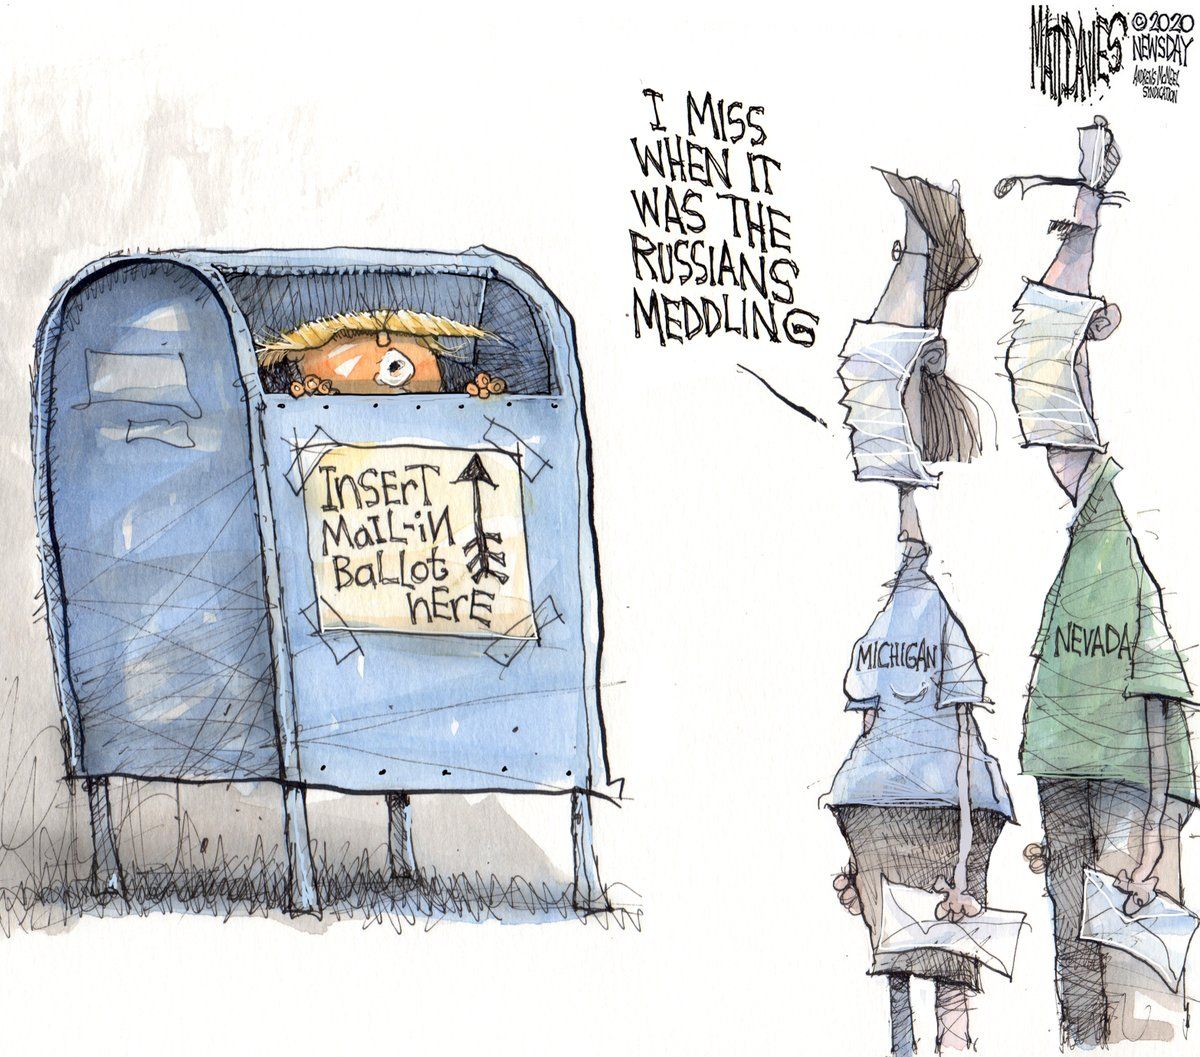 MATT DAVIES
©2020
NEWSDAY
ANDREWS McMEEL
SYNDICATION
I MISS
WHEN IT
WAS THE
RUSSIANS
MEDDLING
INSERT
MAIL-IN
BALLOT
HERE
MICHIGAN
NEVADA